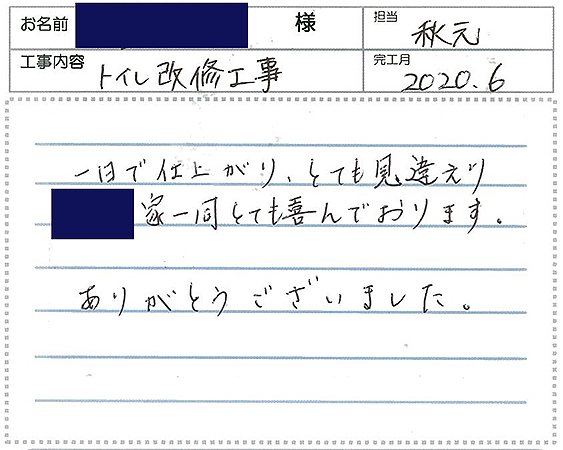 お名前 様 担当 秋元
工事内容 トイレ改修工事 完工月 2020.6
一日で仕上がり、とても見違えり
家一同とても喜んでおります。
ありがとうございました。